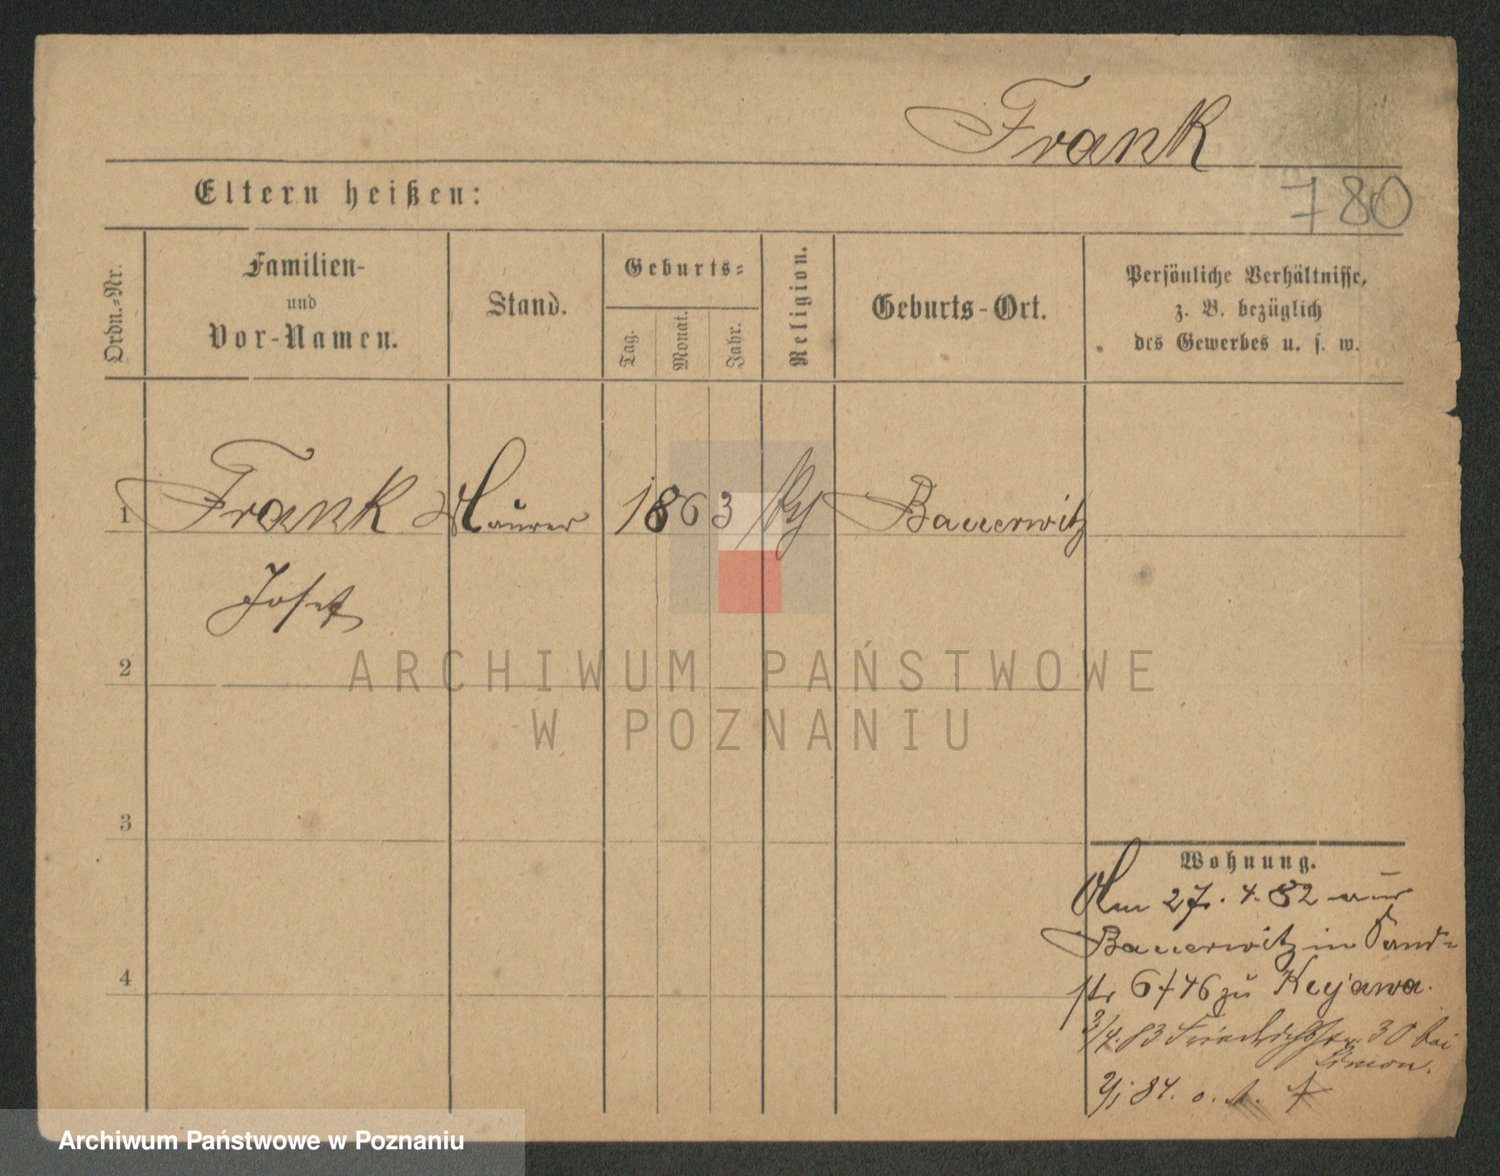 Frank
Eltern heißen:
780
Ordn.-Nr.
Familien-
und
Vor-Namen.
Stand.
Geburts-
Tag.
Monat.
Jahr.
Religion.
Geburts-Ort.
Persönliche Verhältnisse,
z. B. bezüglich
des Gewerbes u. s. w.
1 Frank Maurer 1863 Bauerwitz
Josef
2
ARCHIWUM PAŃSTWOWE
W POZNANIU
3
Wohnung.
Am 27. 4. 82 aus
Bauerwitz in Sand-
4
str 6/ 46 zu Kujawa.
3/4. 83 Friedrichstr. 30 bei
Simon.
84.
Archiwum Państwowe w Poznaniu